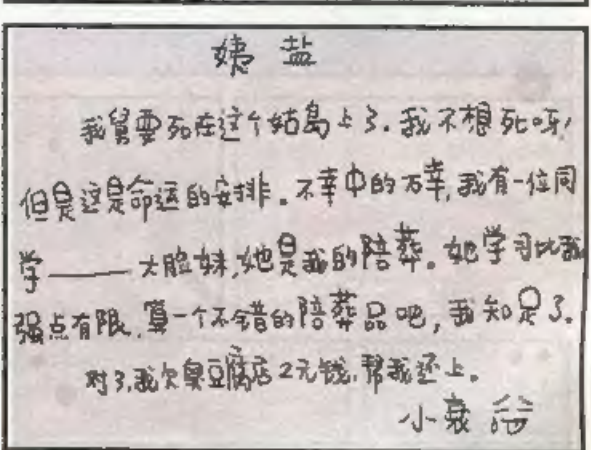 姨盐
我舅要死在这个姑岛上了.我不想死呀!
但是这是命运的安排。不幸中的万幸,我有一位同
学——大脸妹,她是我的陪葬。她学习比我
强点有限.算一个不错的陪葬品吧,我知足了.
对了,我欠臭豆腐店2元钱.帮我还上。
小衰